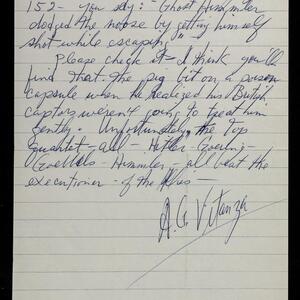 152 - you say: "Ghost Himmler
dodged the noose by getting himself
shot while escaping"
Please check it - I think you'll
find that the pig bit on a poison
capsule when he realized his British
captors weren't going to treat him
gently. Unfortunately, the top
quartet - all - Hitler - Goering -
Goebbels - Himmler - all beat the
executioner - of the Allies -
A. G. Vitanza